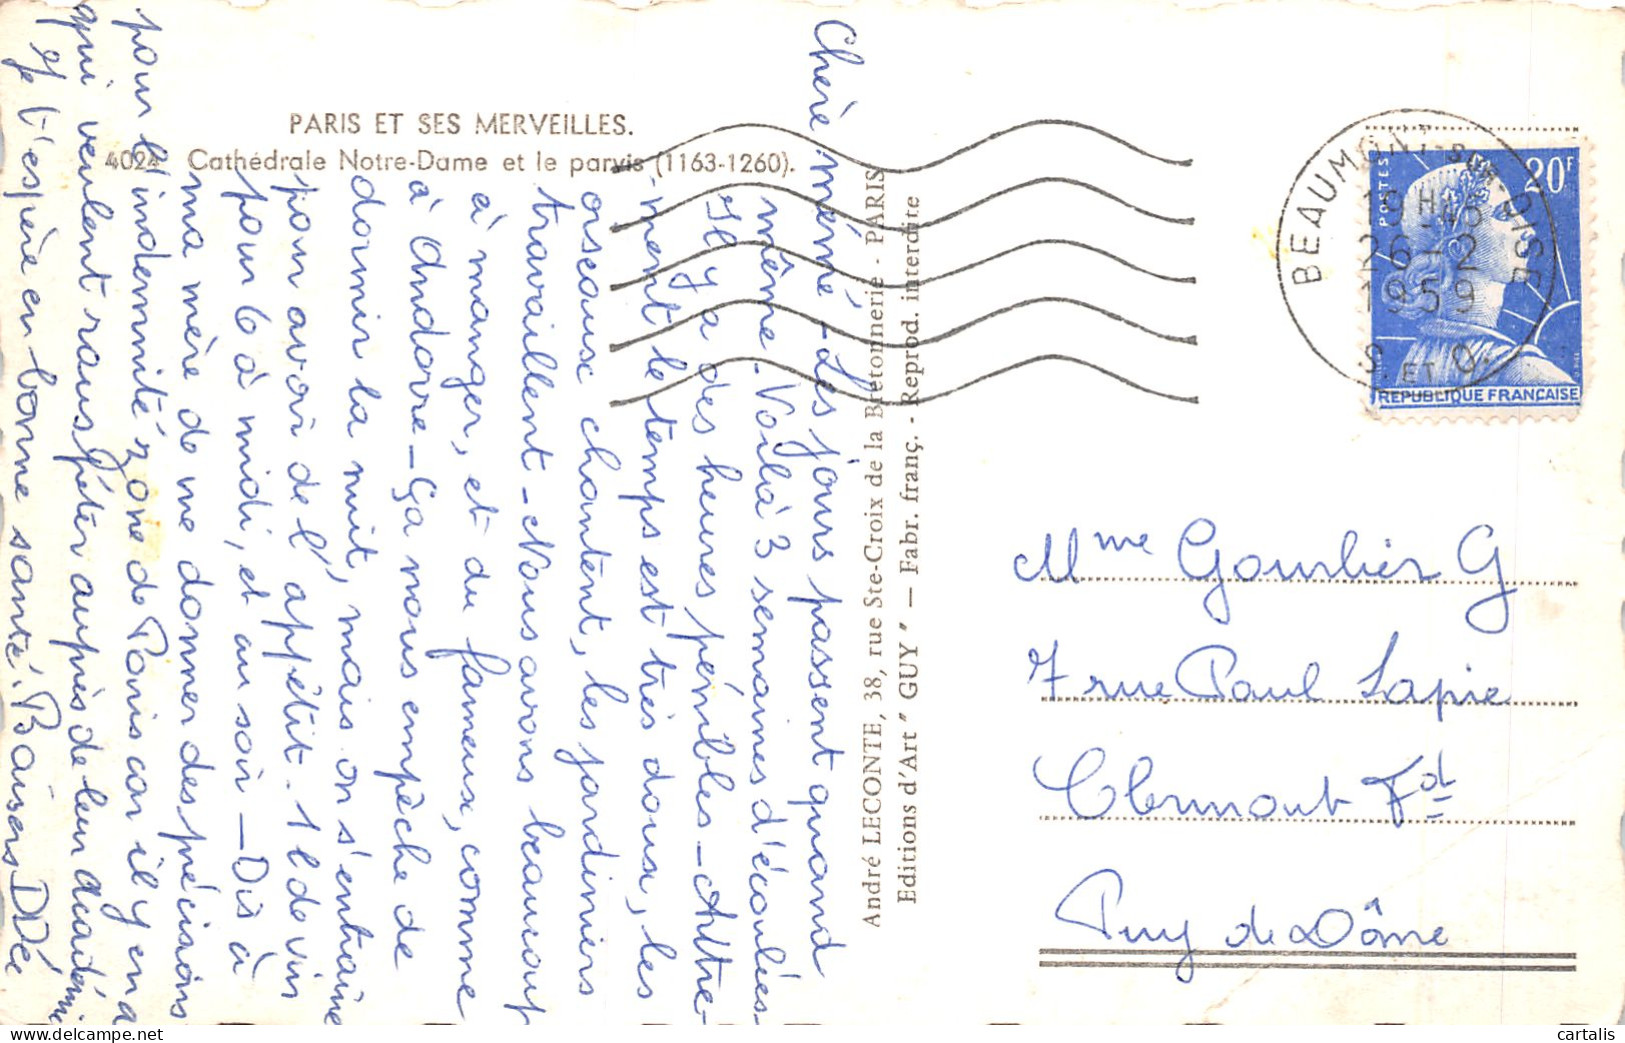 PARIS ET SES MERVEILLES.
4024 Cathédrale Notre-Dame et le parvis (1163-1260).
Chère mémé - Les jours passent quand
même - Voilà 3 semaines d'écoulées -
Il y a des heures pénibles - Autre-
ment le temps est très doux, les
oiseaux chantent, les jardiniers
travaillent - Nous avons beaucoup
à manger, et du fameux, comme
à Andorre - Ça nous empêche de
dormir la nuit, mais on s'entraîne
pour avoir de l'appétit. 1 l de vin
pour 6 à midi, et au soir - Dis à
ma mère de me donner des précisions
pour l'indemnité zone de Paris car il y en a
qui veulent rouspéter auprès de leur académie
Je t'espère en bonne santé. Baisers DDée
André LECONTE, 38, rue Ste-Croix de la Bretonnerie - PARIS
Editions d'Art "GUY" — Fabr. franç. - Reprod. interdite
BEAUMONT-SUR-OISE
19H45
26-2
1959
S. ET O.
POSTES
20F
REPUBLIQUE FRANÇAISE
Mme Gourbier G
7 rue Paul Lapie
Clermont Fd
Puy de Dôme
cartalis